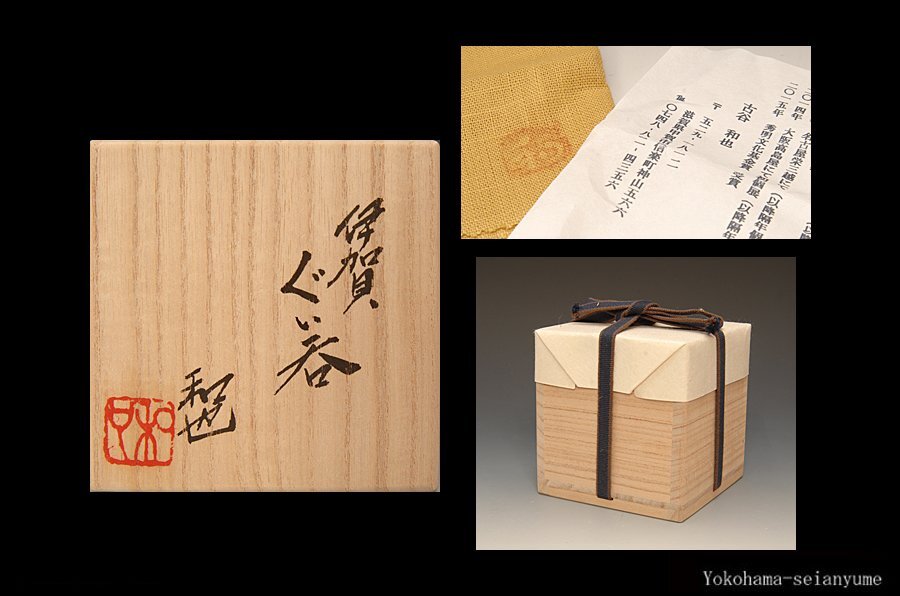 伊賀
ぐい呑
和也
二〇一四年 名古屋栄三越にて
二〇一五年 大阪高島屋にて個展(以降隔年
秀明文化基金賞 受賞
古谷 和也
〒 五二九-
滋賀県甲賀市信楽町神山五六六
℡ 〇七四八-八二-四三五六
Yokohama-seianyume